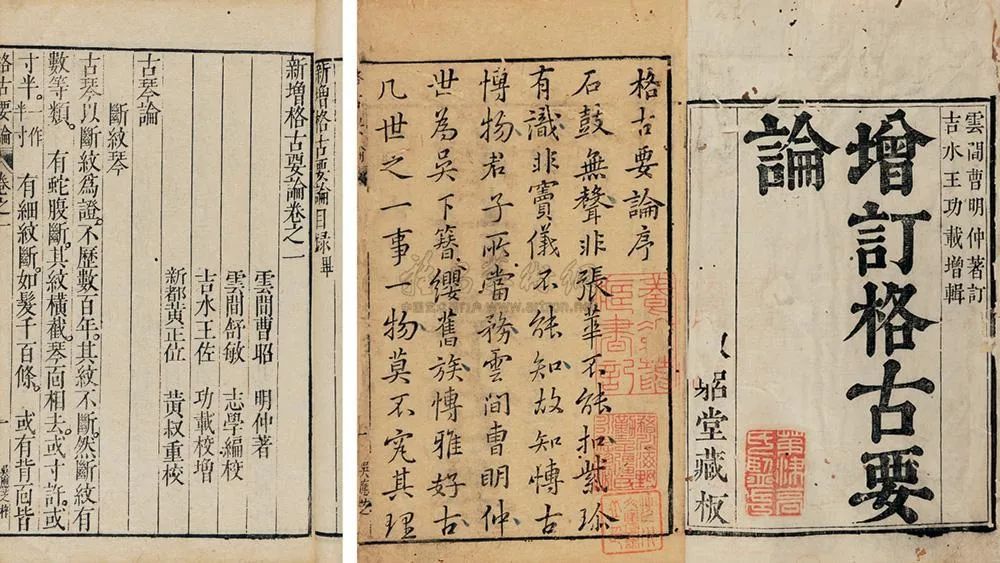 雲間曹明仲著訂
吉水王功載增輯
增訂格古要
論
堂藏板
格古要論序
石鼓無聲非張華不能扣紫珍
有識非竇儀不能知故知博古
博物君子所當務雲間曹明仲
世為吳下簪纓舊族博雅好古
凡世之一事一物莫不究其理
新增格古要論目錄畢
新增格古要論卷之一
雲間曹昭 明仲著
雲間舒敏 志學編校
吉水王佐 功載校增
新都黃正位 黃叔重校
古琴論
斷紋琴
古琴以斷紋爲證不歷數百年其紋不斷然斷紋有
數等類。有蛇腹斷其紋橫截琴面相去或寸許或
寸半。一作半寸 有細紋斷如髮千百條。或有背面皆
格古要論 卷之一 一